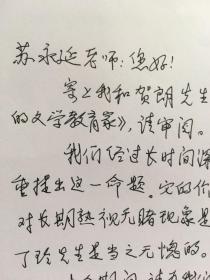 苏永延老师：您好！
寄上我和贺朗先生
的文学教育家》，请审阅。
我们经过长时间深
重提出这一命题。它的价
对长期熟视无睹现象是
了玲先生是当之无愧的。